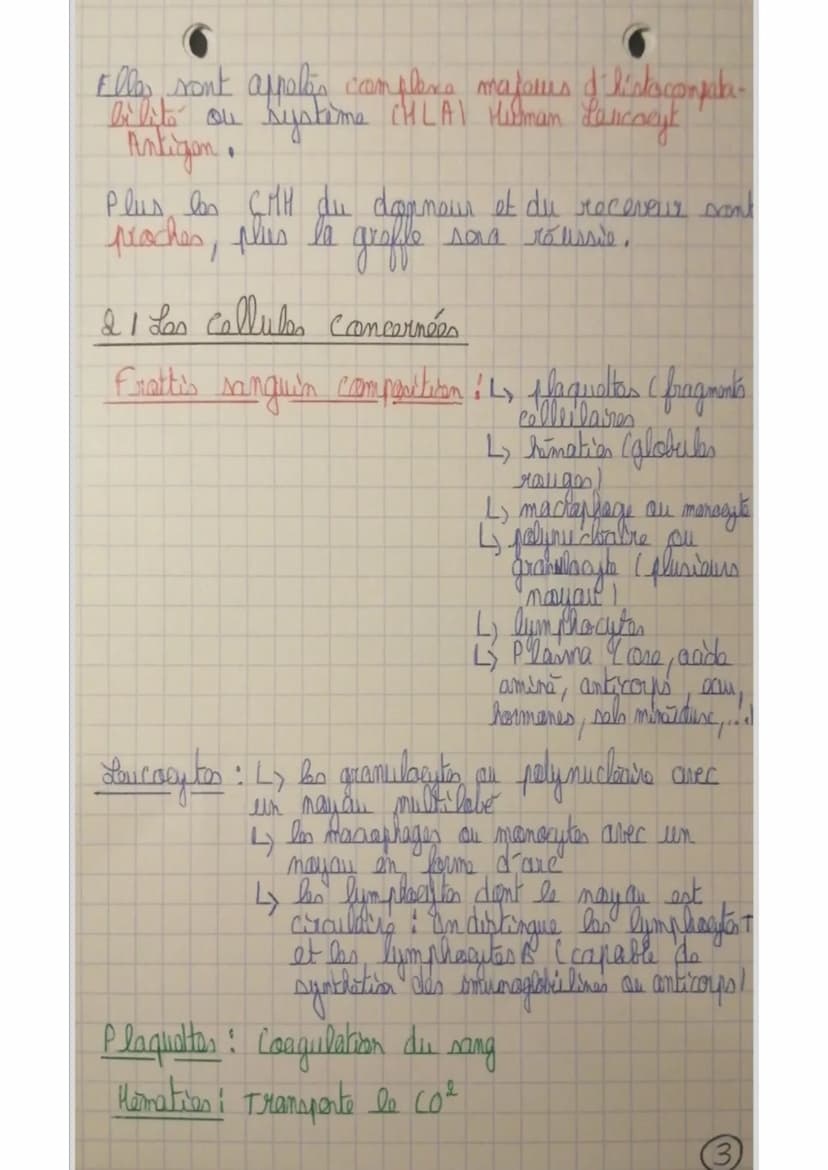 Elles sont appelés complexe majeurs d'histocompata-
bilité ou système (HLA) Human Leucocyt
Antigen.
Plus les CMH du donneur et du receveur sont
proches, plus la greffe sera réussie.
2 / Les cellules concernées
Frottis sanguin composition : ↳ plaquettes (fragments
cellulaires
↳ hématies (globules
rouges)
↳ macrophage ou monocyte
↳ polynucléaire ou
granulocyte (plusieurs
noyaux)
↳ lymphocytes
↳ Plasma (ose, acide
aminé, anticorps, eau,
hormones, sels minéraux,...)
Leucocytes : ↳ les granulocytes ou polynucléaire avec
un noyau multilobé
↳ les macrophages ou monocytes avec un
noyau en forme d'arc
↳ les lymphocytes dont le noyau est
circulaire : on distingue les lymphocytes T
et les lymphocytes B (capable de
synthétiser des immunoglobulines ou anticorps)
Plaquettes : Coagulation du sang
Hématies : Transporte le CO²
3